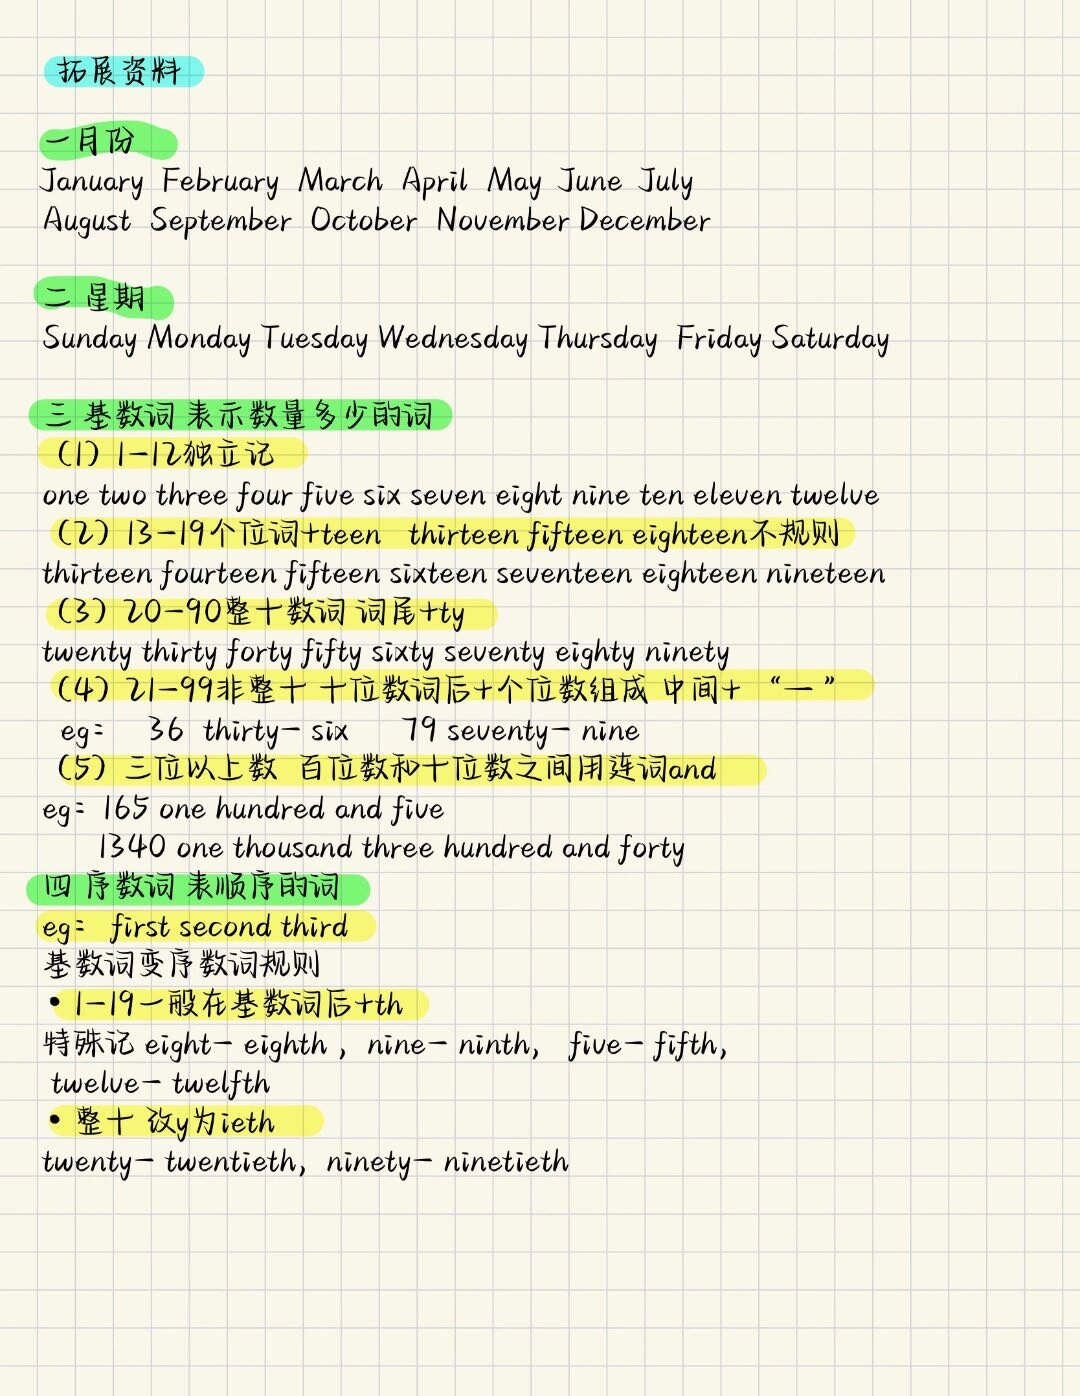 拓展资料
一月份
January February March April May June July
August September October November December
二 星期
Sunday Monday Tuesday Wednesday Thursday Friday Saturday
三 基数词 表示数量多少的词
（1）1-12独立记
one two three four five six seven eight nine ten eleven twelve
（2）13-19个位词+teen thirteen fifteen eighteen不规则
thirteen fourteen fifteen sixteen seventeen eighteen nineteen
（3）20-90整十数词 词尾+ty
twenty thirty forty fifty sixty seventy eighty ninety
（4）21-99非整十 十位数词后+个位数组成 中间+“一”
eg: 36 thirty- six 79 seventy- nine
（5）三位以上数 百位数和十位数之间用连词and
eg: 165 one hundred and five
1340 one thousand three hundred and forty
四 序数词 表顺序的词
eg: first second third
基数词变序数词规则
• 1-19一般在基数词后+th
特殊记 eight- eighth , nine- ninth, five- fifth,
twelve- twelfth
• 整十 改y为ieth
twenty- twentieth, ninety- ninetieth